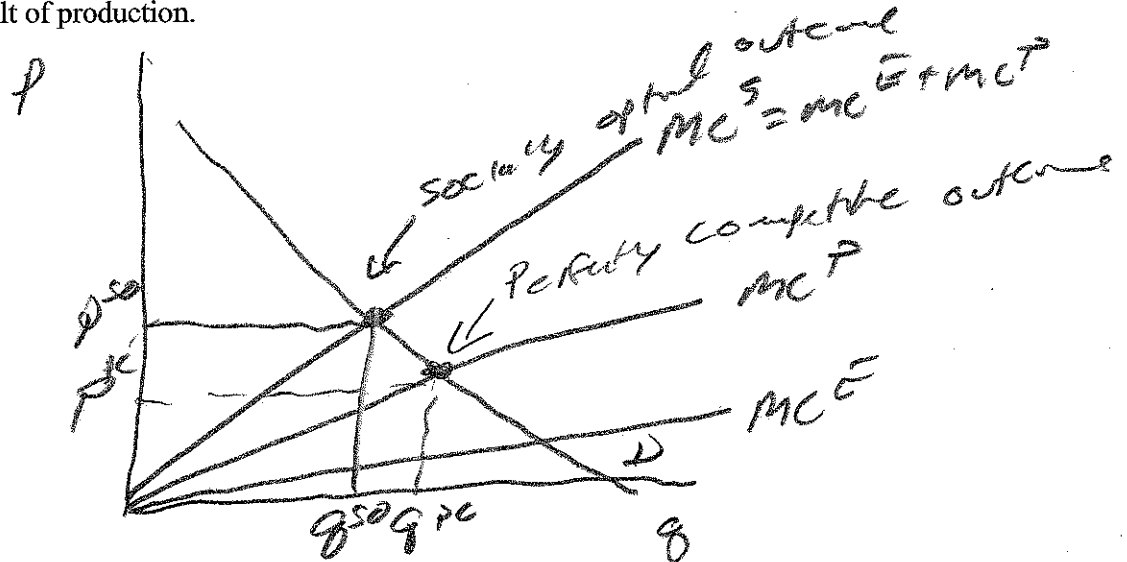 lt of production.
P
socially optimal outcome
MC^S = MC^E + MC^P
Perfectly competitive outcome
MC^P
P^so
P^pc
MC^E
D
q^so q^pc
q